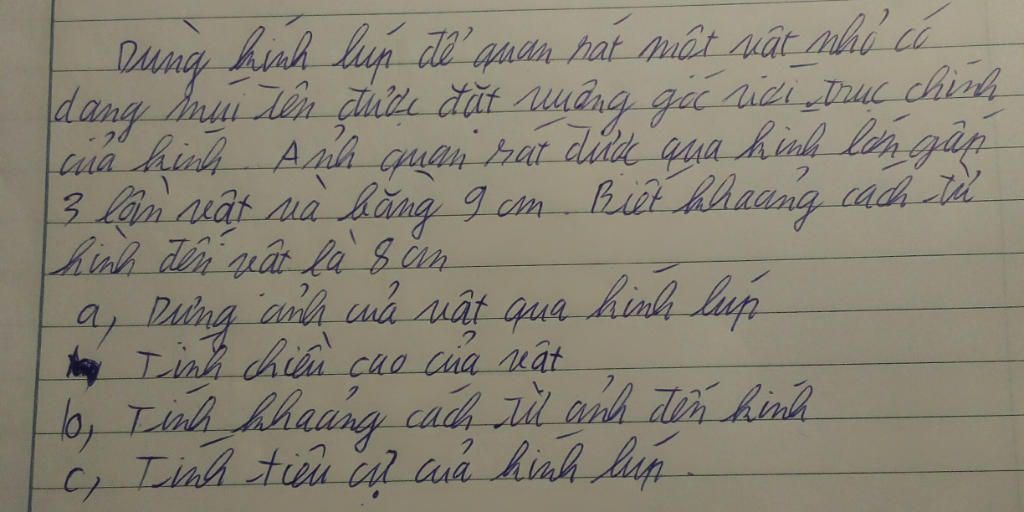 Dùng kính lúp để quan sát một vật nhỏ có
dạng mũi tên được đặt vuông góc với trục chính
của kính. Ảnh quan sát được qua kính lớn gấp
3 lần vật và bằng 9 cm. Biết khoảng cách từ
kính đến vật là 8 cm
a, Dựng ảnh của vật qua kính lúp
Tính chiều cao của vật
b, Tính khoảng cách từ ảnh đến kính
c, Tính tiêu cự của kính lúp.